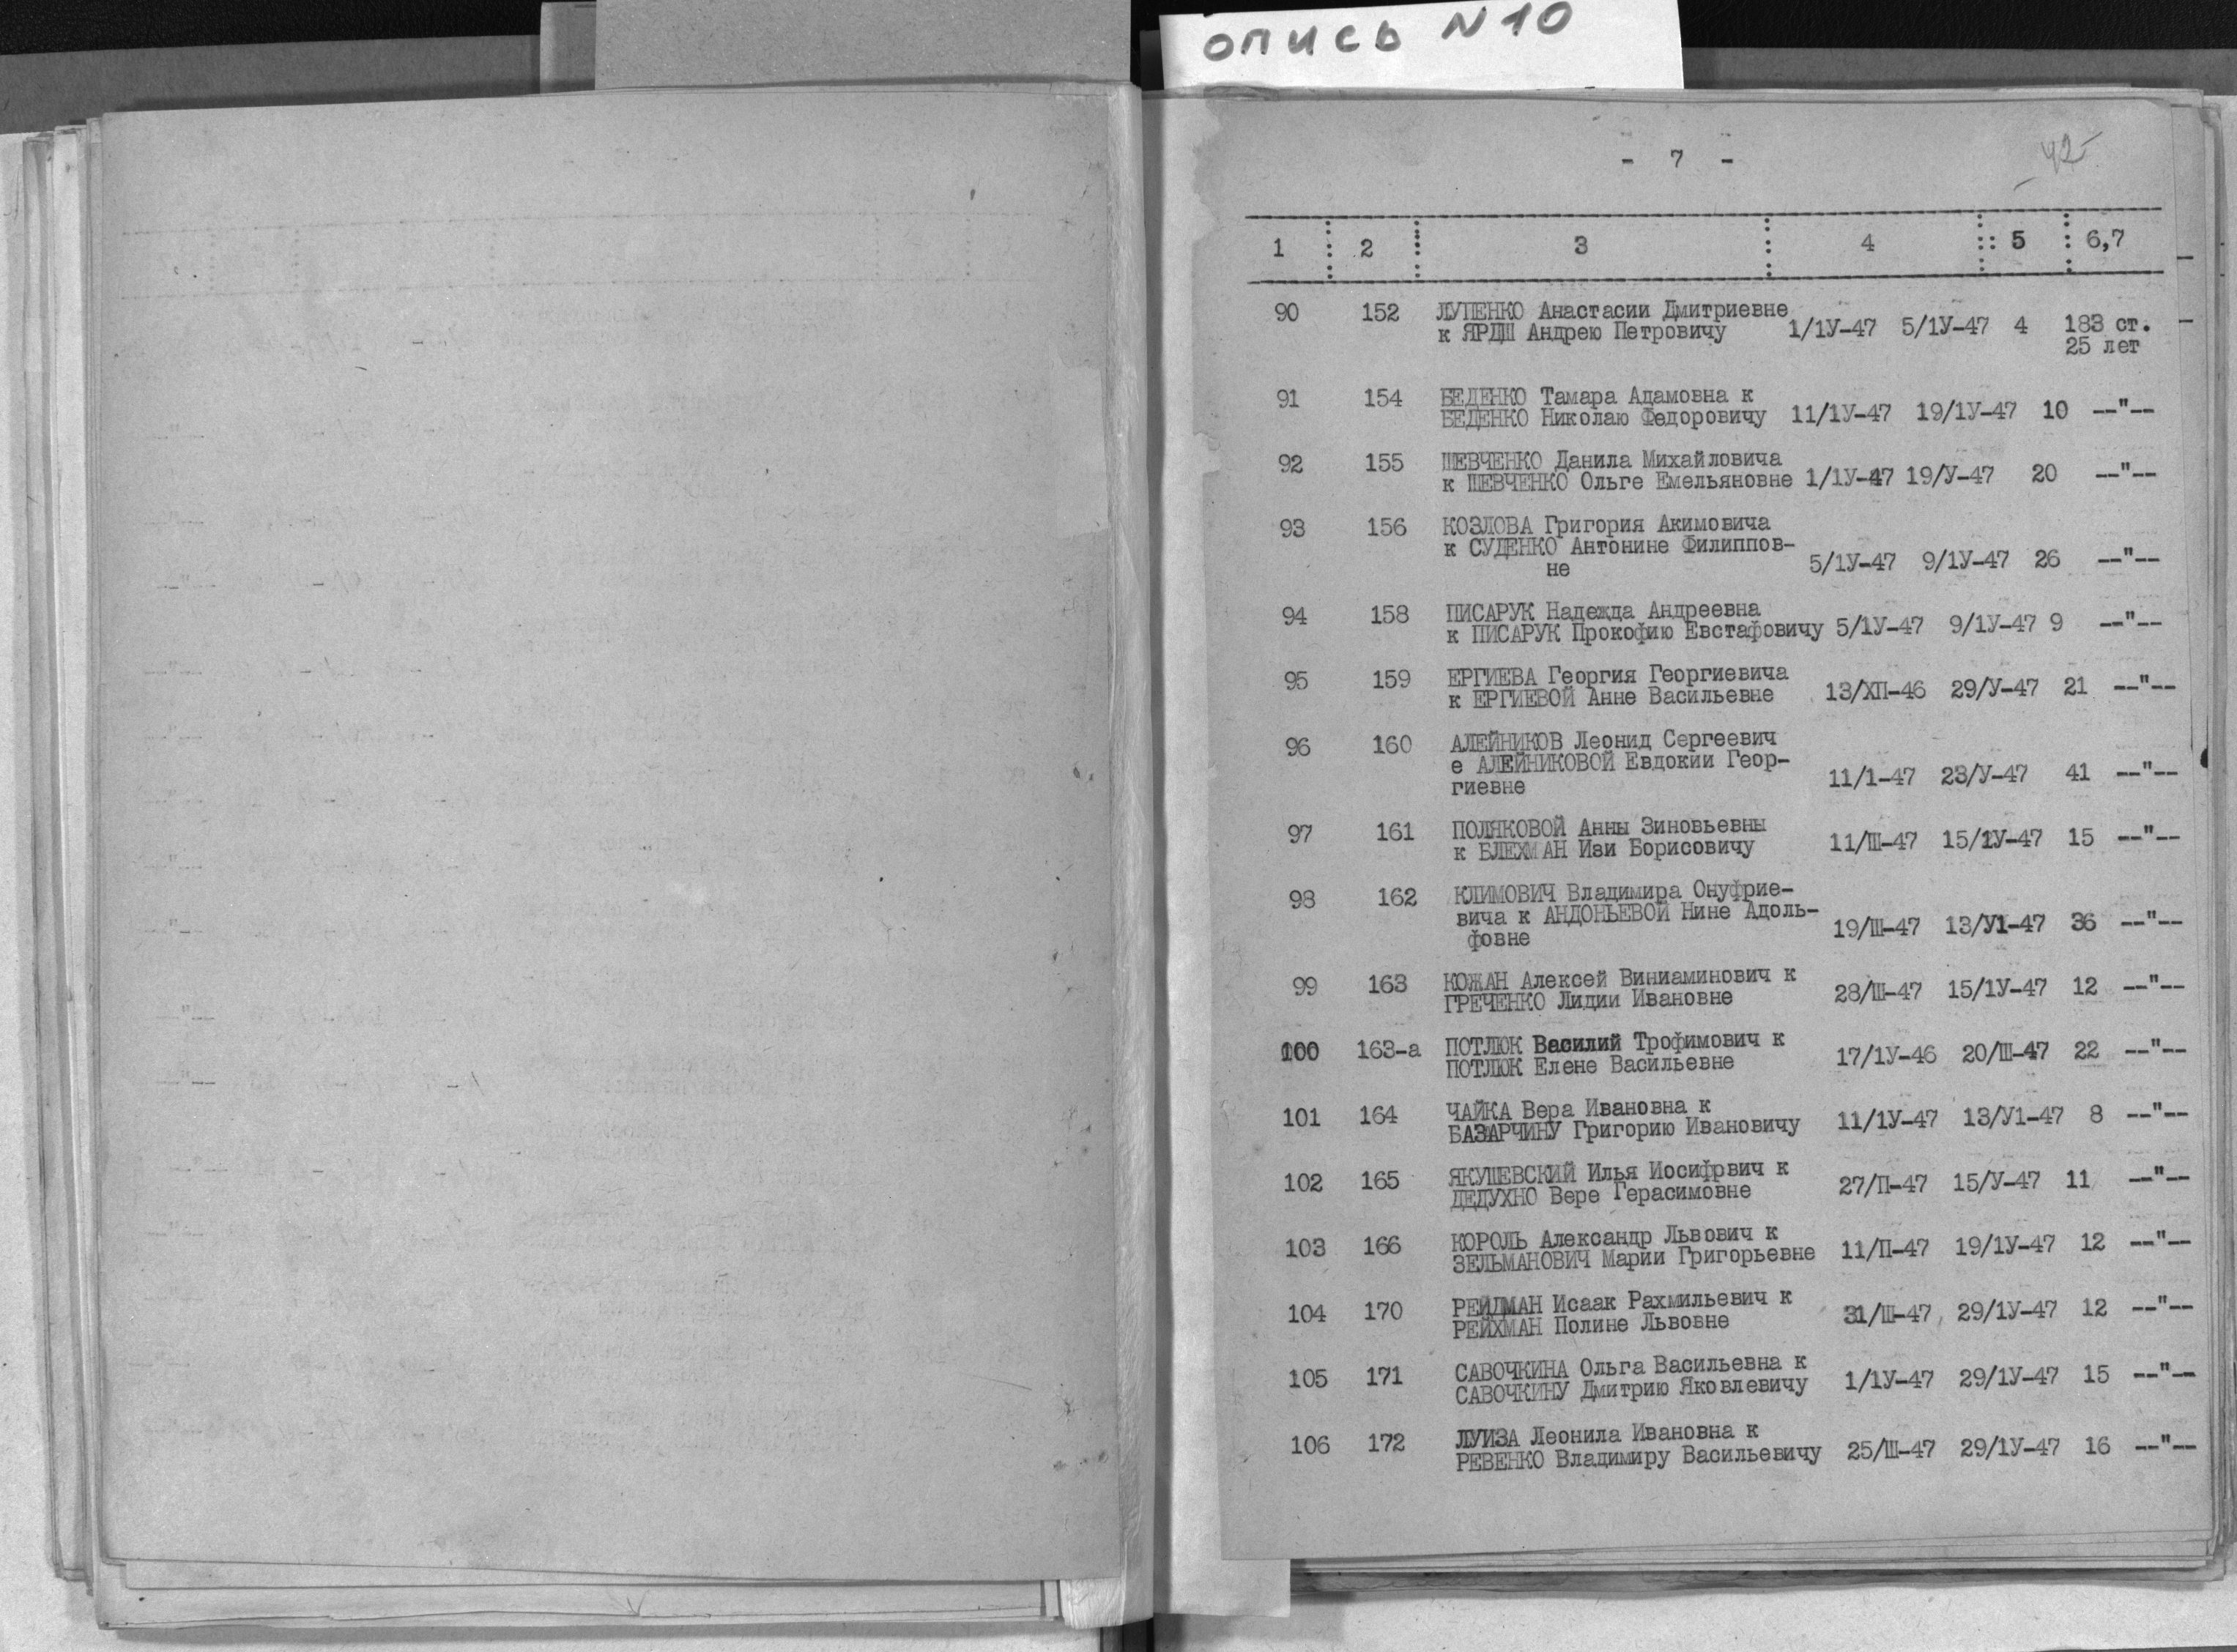 опись N10
- 7 -
42
1 2 3 4 5 6,7
90 152 ЛУПЕНКО Анастасии Дмитриевне
к ЯРДШ Андрею Петровичу 1/1У-47 5/1У-47 4 183 ст.
25 лет
91 154 БЕДЕНКО Тамара Адамовна к
БЕДЕНКО Николаю Федоровичу 11/1У-47 19/1У-47 10 --"--
92 155 ШЕВЧЕНКО Данила Михайловича
к ШЕВЧЕНКО Ольге Емельяновне 1/1У-47 19/У-47 20 --"--
93 156 КОЗЛОВА Григория Акимовича
к СУДЕНКО Антонине Филиппов-
не 5/1У-47 9/1У-47 26 --"--
94 158 ПИСАРУК Надежда Андреевна
к ПИСАРУК Прокофию Евстафовичу 5/1У-47 9/1У-47 9 --"--
95 159 ЕРГИЕВА Георгия Георгиевича
к ЕРГИЕВОЙ Анне Васильевне 13/ХП-46 29/У-47 21 --"--
96 160 АЛЕЙНИКОВ Леонид Сергеевич
е АЛЕЙНИКОВОЙ Евдокии Геор-
гиевне 11/1-47 23/У-47 41 --"--
97 161 ПОЛЯКОВОЙ Анны Зиновьевны
к БЛЕХМАН Изи Борисовичу 11/Ш-47 15/1У-47 15 --"--
98 162 КЛИМОВИЧ Владимира Онуфрие-
вича к АНДОНЬЕВОЙ Нине Адоль-
фовне 19/Ш-47 13/У1-47 36 --"--
99 163 КОЖАН Алексей Виниаминович к
ГРЕЧЕНКО Лидии Ивановне 28/Ш-47 15/1У-47 12 --"--
100 163-а ПОТЛЮК Василий Трофимович к
ПОТЛЮК Елене Васильевне 17/1У-46 20/Ш-47 22 --"--
101 164 ЧАЙКА Вера Ивановна к
БАЗАРЧИНУ Григорию Ивановичу 11/1У-47 13/У1-47 8 --"--
102 165 ЯКУШЕВСКИЙ Илья Иосифрвич к
ДЕДУХНО Вере Герасимовне 27/П-47 15/У-47 11 --"--
103 166 КОРОЛЬ Александр Львович к
ЗЕЛЬМАНОВИЧ Марии Григорьевне 11/П-47 19/1У-47 12 --"--
104 170 РЕЙДМАН Исаак Рахмильевич к
РЕЙХМАН Полине Львовне 31/Ш-47 29/1У-47 12 --"--
105 171 САВОЧКИНА Ольга Васильевна к
САВОЧКИНУ Дмитрию Яковлевичу 1/1У-47 29/1У-47 15 --"--
106 172 ЛУИЗА Леонила Ивановна к
РЕВЕНКО Владимиру Васильевичу 25/Ш-47 29/1У-47 16 --"--